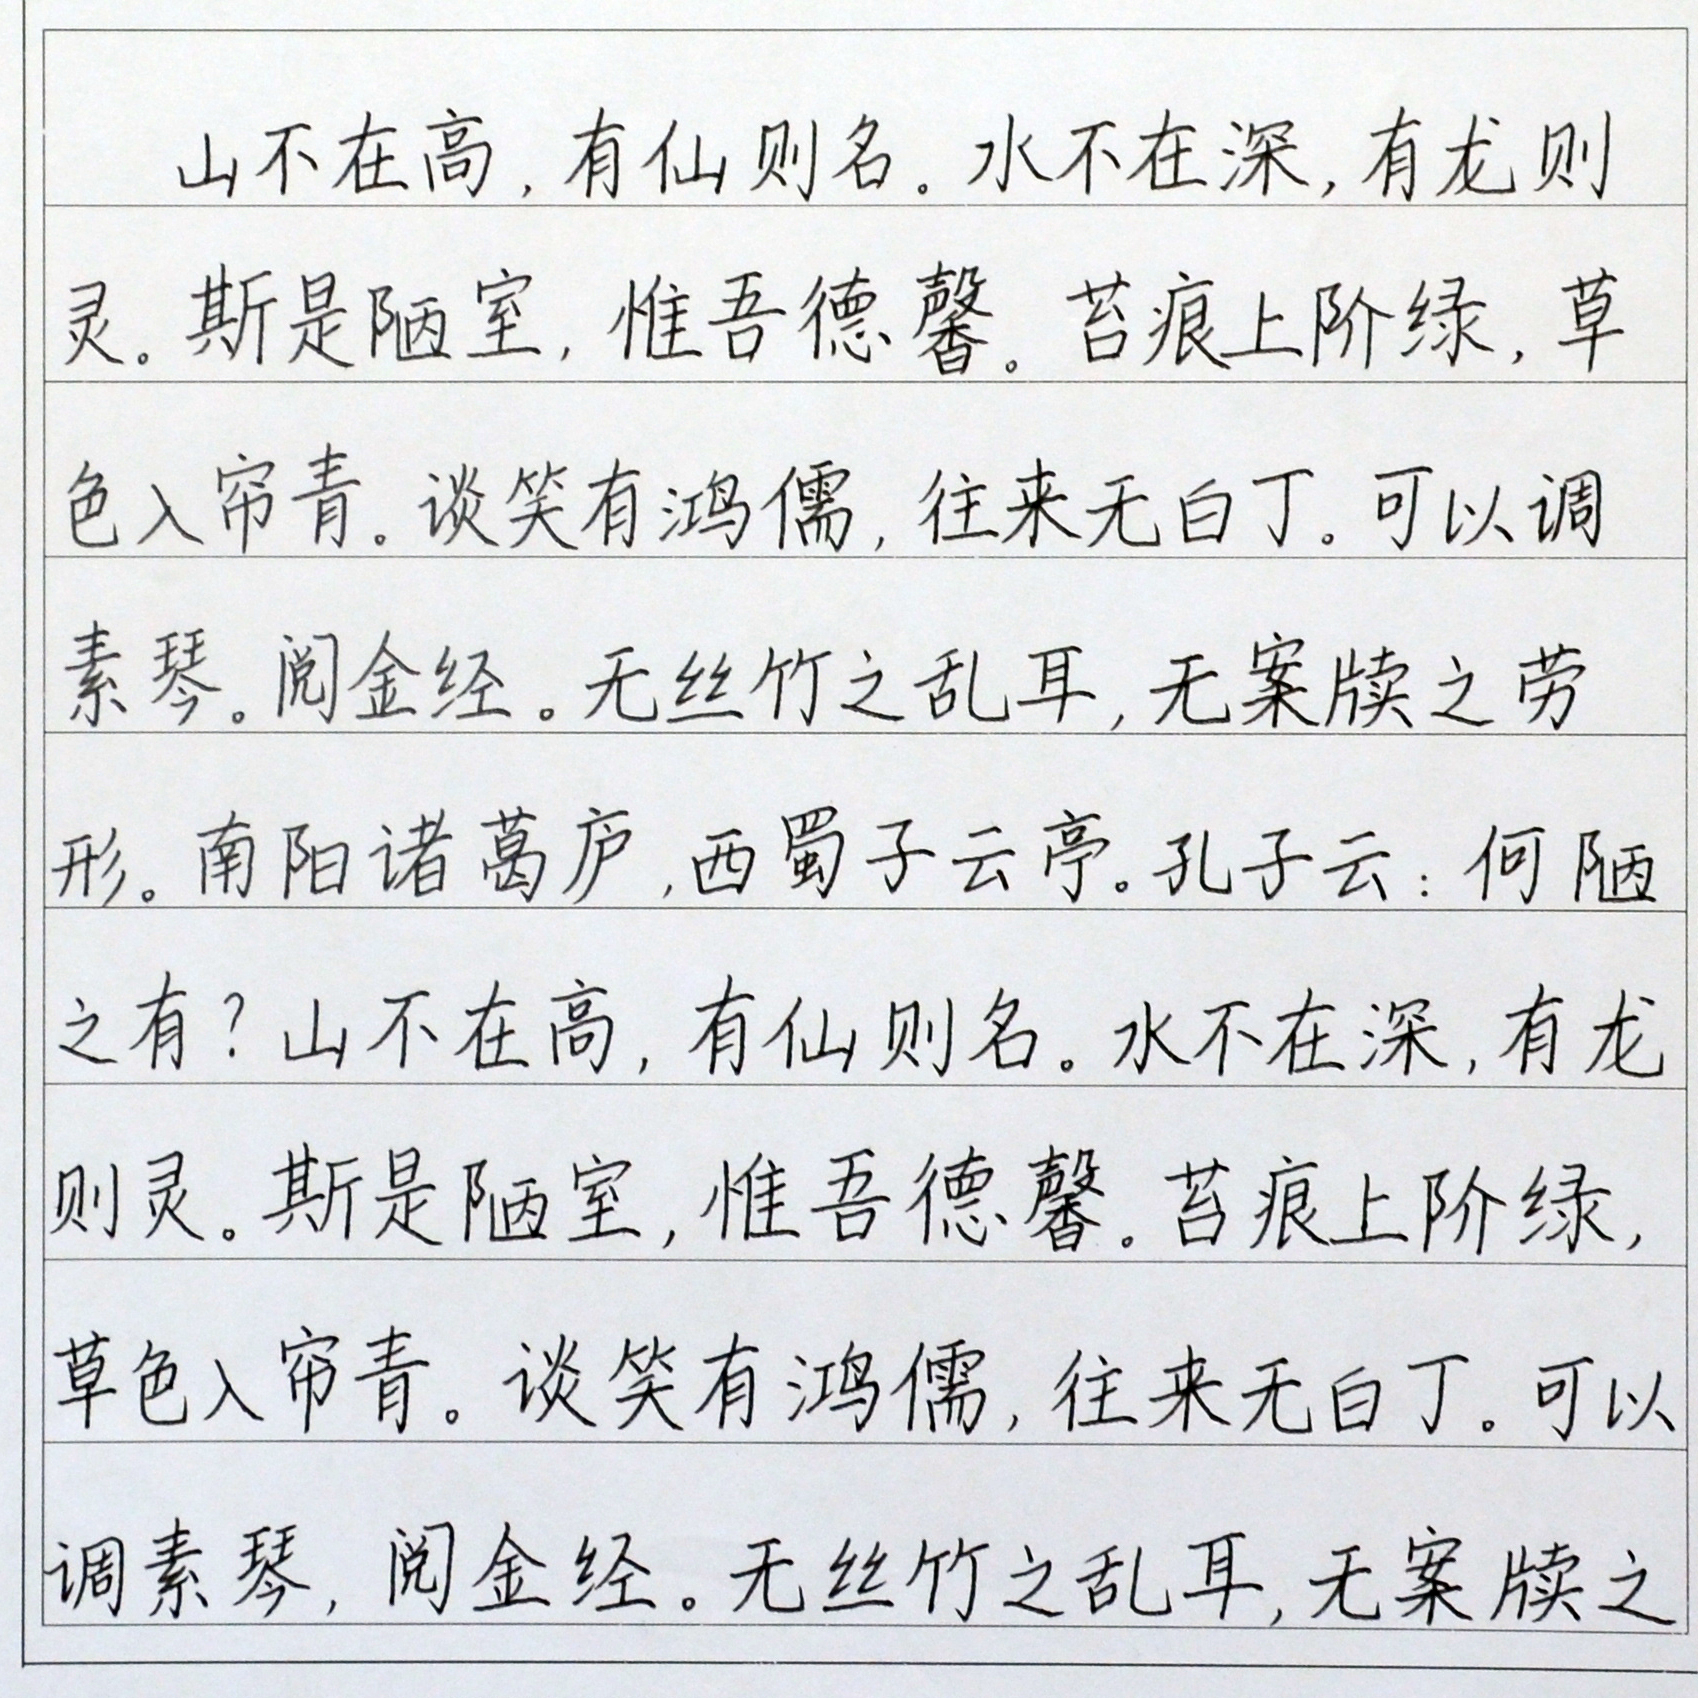 山不在高，有仙则名。水不在深，有龙则
灵。斯是陋室，惟吾德馨。苔痕上阶绿，草
色入帘青。谈笑有鸿儒，往来无白丁。可以调
素琴。阅金经。无丝竹之乱耳，无案牍之劳
形。南阳诸葛庐，西蜀子云亭。孔子云：何陋
之有？山不在高，有仙则名。水不在深，有龙
则灵。斯是陋室，惟吾德馨。苔痕上阶绿，
草色入帘青。谈笑有鸿儒，往来无白丁。可以
调素琴，阅金经。无丝竹之乱耳，无案牍之